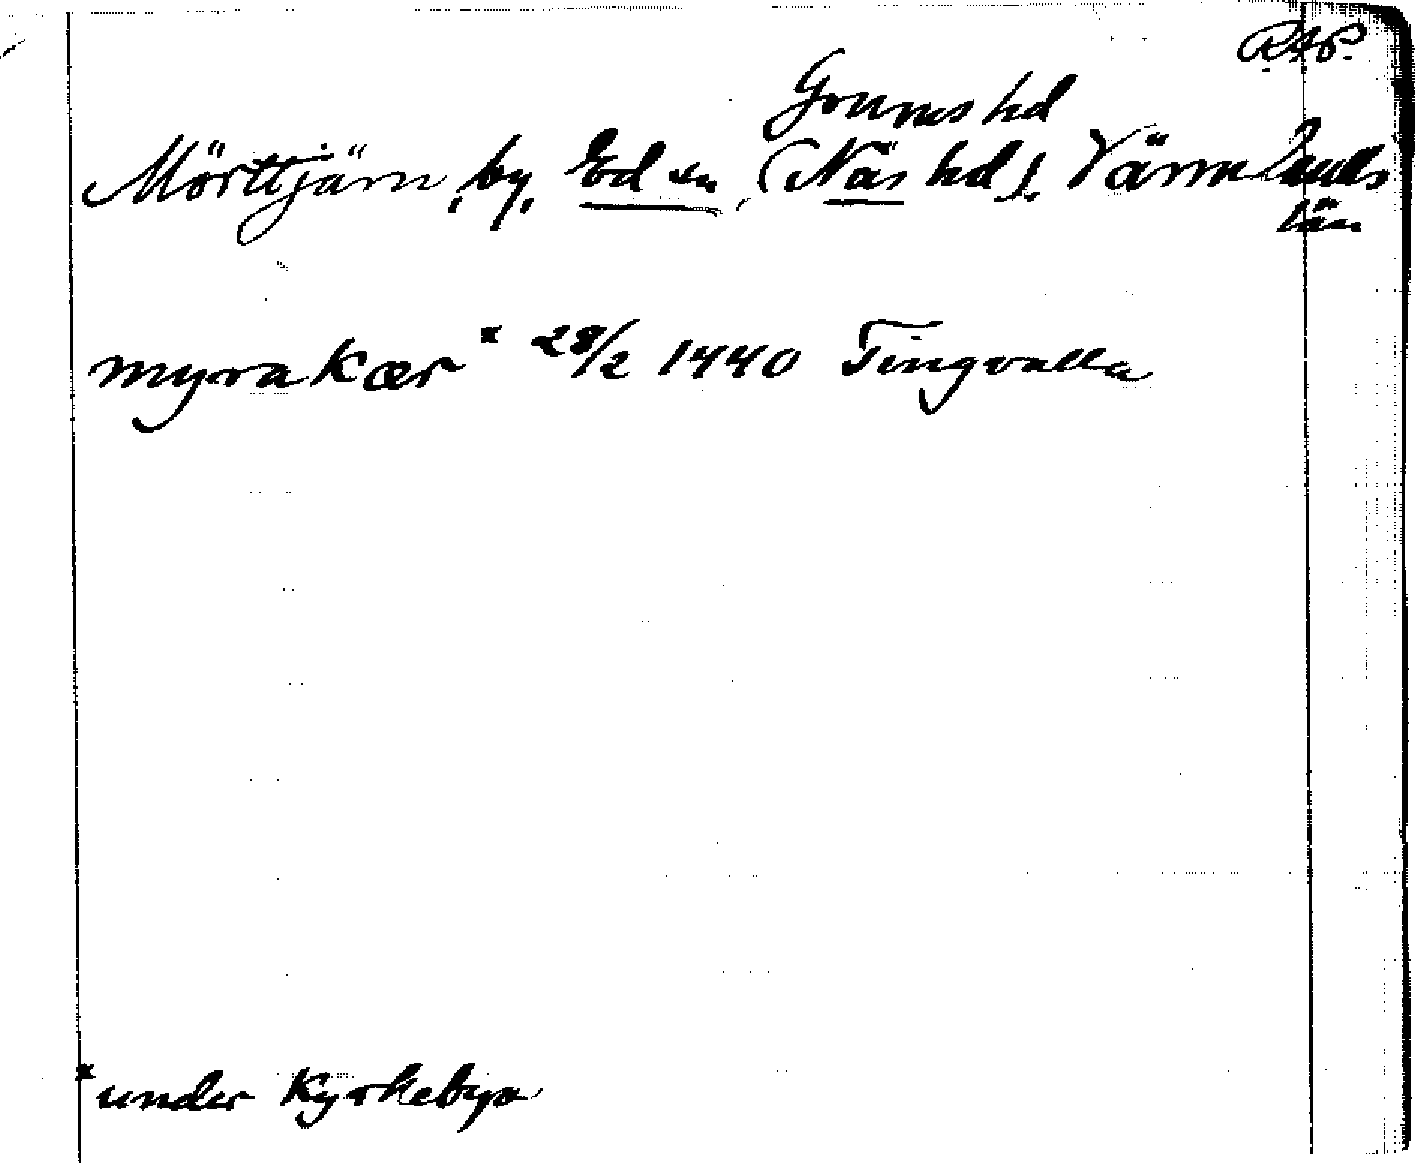 RAP.
Grums hd
Mörttjärn, by, Ed sn, (Näs hd), Värmlands
län
myrakær x 28/2 1440 Tingvalla
x under Kyrkebyn